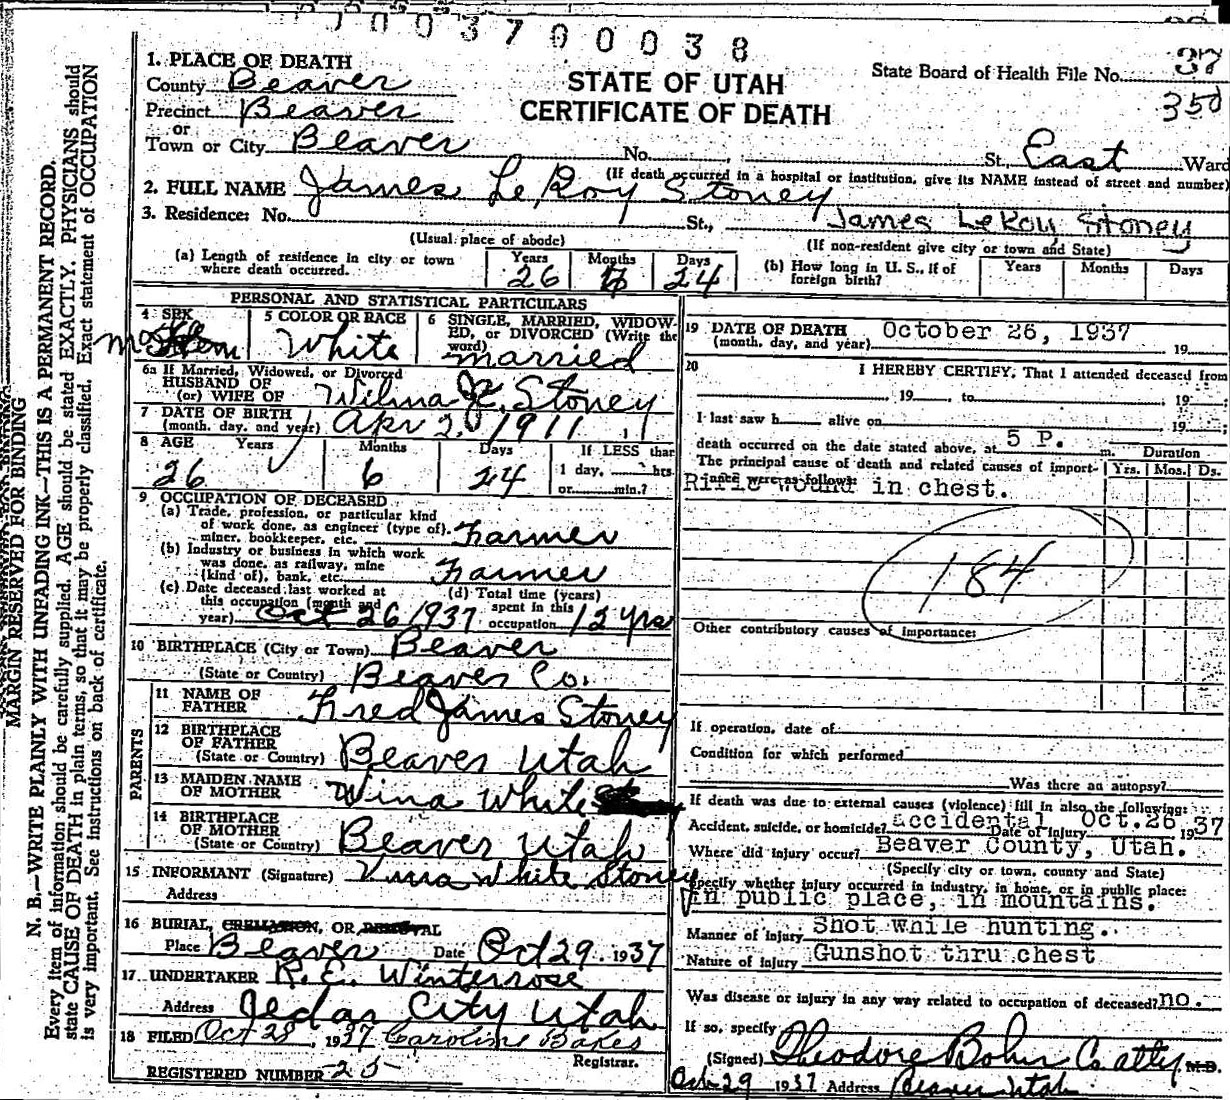 003700038
1. PLACE OF DEATH
County Beaver
Precinct Beaver
or
Town or City Beaver No. St. East Ward
STATE OF UTAH
CERTIFICATE OF DEATH
State Board of Health File No. 37
350
(If death occurred in a hospital or institution, give its NAME instead of street and number)
2. FULL NAME James LeRoy Stoney
3. Residence: No. St., James LeRoy Stoney
(Usual place of abode) (If non-resident give city or town and State)
(a) Length of residence in city or town where death occurred. Years 26 Months 6 Days 24
(b) How long in U. S., if of foreign birth? Years Months Days
PERSONAL AND STATISTICAL PARTICULARS
4 SEX
5 COLOR OR RACE White
6 SINGLE, MARRIED, WIDOWED, or DIVORCED (Write the word) married
6a If Married, Widowed, or Divorced
HUSBAND OF
(or) WIFE OF Wilma J. Stoney
7 DATE OF BIRTH
(month, day, and year) Apr 2, 1911
8 AGE Years 26 Months 6 Days 24 If LESS than
1 day, hrs.
or min.?
9 OCCUPATION OF DECEASED
(a) Trade, profession, or particular kind
of work done, as engineer (type of),
miner, bookkeeper, etc. Farmer
(b) Industry or business in which work
was done, as railway, mine
(kind of), bank, etc. Farmer
(c) Date deceased last worked at
this occupation (month and
year) Oct 26 1937
(d) Total time (years)
spent in this
occupation 12 yrs
10 BIRTHPLACE (City or Town) Beaver
(State or Country) Beaver Co.
PARENTS
11 NAME OF
FATHER Fred James Stoney
12 BIRTHPLACE
OF FATHER
(State or Country) Beaver Utah
13 MAIDEN NAME
OF MOTHER Vina White
14 BIRTHPLACE
OF MOTHER
(State or Country) Beaver Utah
15 INFORMANT (Signature) Vina White Stoney
Address
16 BURIAL, CREMATION, OR REMOVAL
Place Beaver Date Oct 29 1937
17 UNDERTAKER R. E. Winterrose
Address Cedar City Utah
18 FILED Oct 28, 1937 Caroline Bakes
Registrar.
REGISTERED NUMBER 25
19 DATE OF DEATH October 26, 1937
(month, day, and year) 19
20 I HEREBY CERTIFY, That I attended deceased from
, 19 , to , 19 ;
I last saw h alive on 19 ;
death occurred on the date stated above, at 5 P. m. Duration
The principal cause of death and related causes of importance were as follows: Yrs. Mos. Ds.
Rifle wound in chest.
184
Other contributory causes of importance:
If operation, date of
Condition for which performed
Was there an autopsy?
If death was due to external causes (violence) fill in also the following:
Accident, suicide, or homicide? accidental Date of injury Oct.26 1937
Where did injury occur? Beaver County, Utah.
(Specify city or town, county and State)
Specify whether injury occurred in industry, in home, or in public place:
In public place, in mountains.
Manner of injury Shot while hunting.
Nature of injury Gunshot thru chest
Was disease or injury in any way related to occupation of deceased? no.
If so, specify
(Signed) Theodore Bohn Co atty M.D.
Oct 29 1937 Address Beaver Utah
MARGIN RESERVED FOR BINDING
N. B.—WRITE PLAINLY WITH UNFADING INK—THIS IS A PERMANENT RECORD.
Every item of information should be carefully supplied. AGE should be stated EXACTLY. PHYSICIANS should
state CAUSE OF DEATH in plain terms, so that it may be properly classified. Exact statement of OCCUPATION
is very important. See instructions on back of certificate.